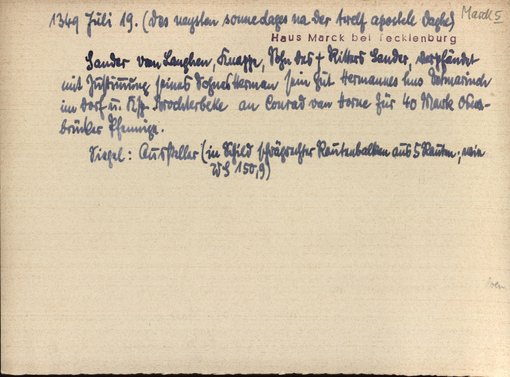 1349 Juli 19. (des neysten sonnedages na der twelf apostele daghe)
Marck 5
Haus Marck bei Tecklenburg
Sander van Langhen, Knappe, Sohn des † Ritters Sander, verpfändet
mit Zustimmung seines Sohnes Herman sein Gut Hermannes hus
im Dorf u. Ksp. Brochterbeke an Conrad van Horne für 40 Mark Osna-
brücker Pfennige.
Siegel: Aussteller (im Schild schrägrechter Rautenbalken aus 5 Rauten; wie
WS 150,9)